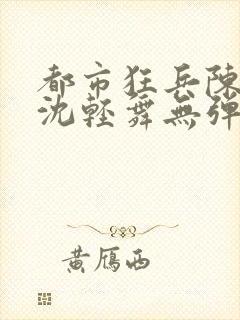 都市狂兵陳
沈輕舞無彈
黃雁西